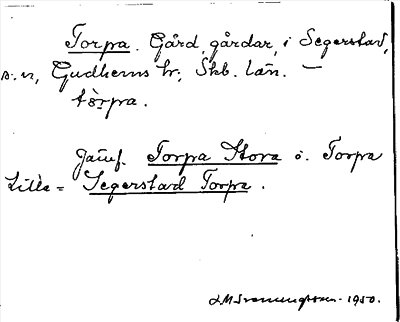 Torpa. Gård, gårdar, i Segerstad,
s:n, Gudhems hr; Skb. län. —
tòrpa.
Jämf. Torpa Stora o. Torpa
Lilla = Segerstad Torpa.
1950.